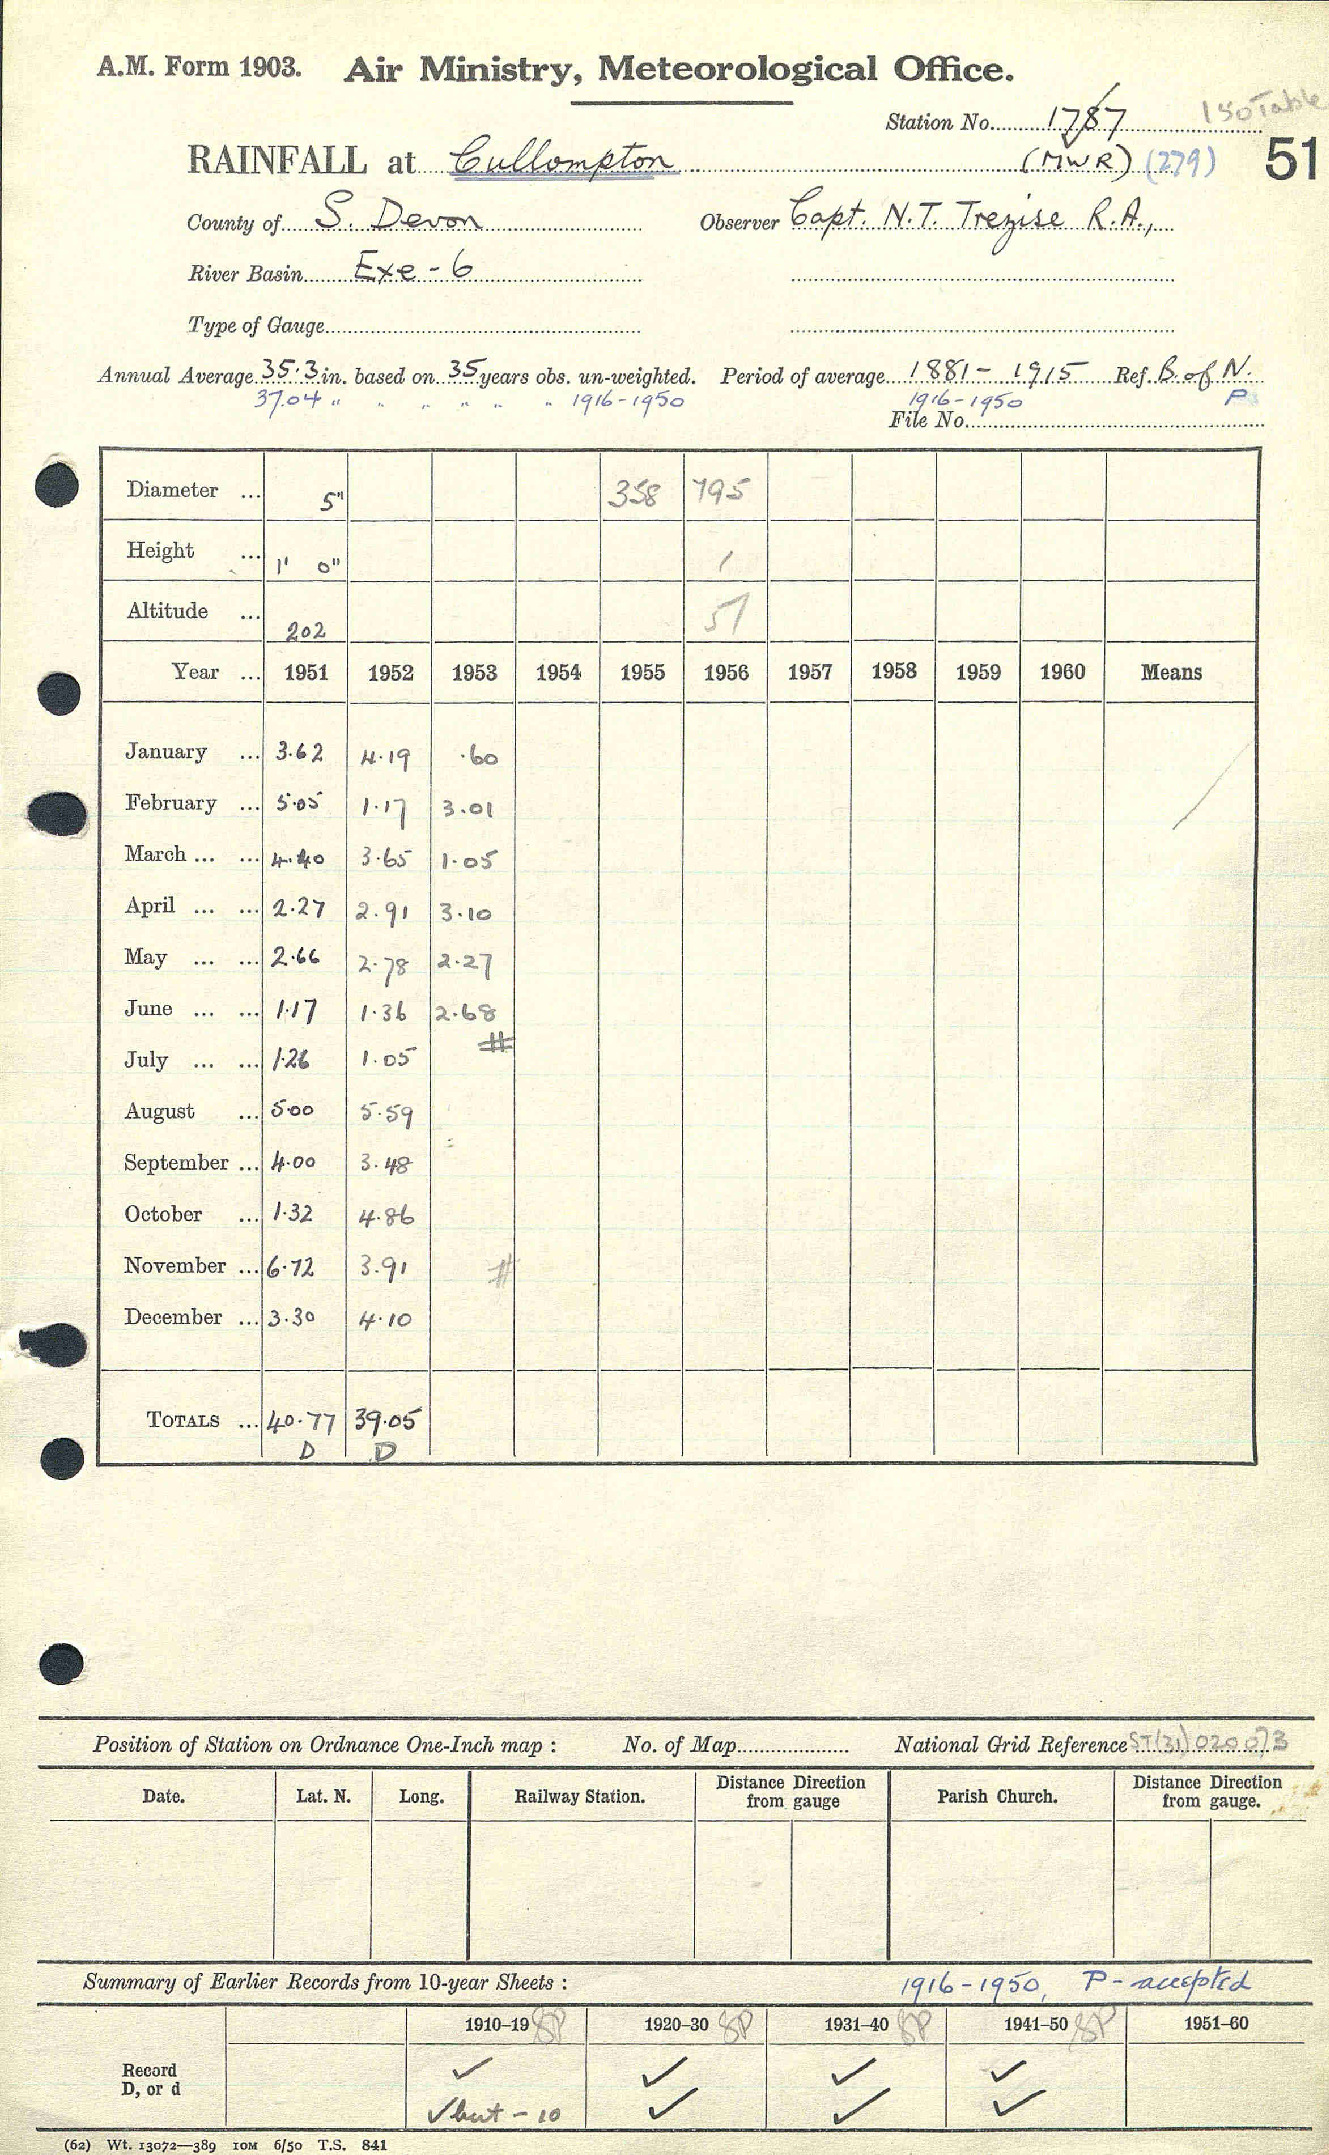 A.M. Form 1903. Air Ministry, Meteorological Office.
Station No. 1787 Iso Table
RAINFALL at Cullompton (MWR) (279) 51
County of S. Devon Observer Capt. N.T. Trezise R.A.,
River Basin Exe - 6
Type of Gauge
Annual Average 35.3 in. based on 35 years obs. un-weighted. Period of average 1881 - 1915 Ref. B of N.
37.04 " " " " " " 1916-1950 1916-1950 P
File No.
Diameter ... 5" 358 795
Height ... 1' 0" 1
Altitude ... 202 51
Year ... 1951 1952 1953 1954 1955 1956 1957 1958 1959 1960 Means
January ... 3.62 4.19 .60
February ... 5.05 1.17 3.01
March ... ... 4.40 3.65 1.05
April ... ... 2.27 2.91 3.10
May ... ... 2.66 2.78 2.27
June ... ... 1.17 1.36 2.68
July ... ... 1.26 1.05
August ... 5.00 5.59
September ... 4.00 3.48
October ... 1.32 4.86
November ... 6.72 3.91
December ... 3.30 4.10
TOTALS ... 40.77 39.05
D D
Position of Station on Ordnance One-Inch map : No. of Map National Grid Reference ST(31)020073
Date. Lat. N. Long. Railway Station. Distance Direction from gauge Parish Church. Distance Direction from gauge.
Summary of Earlier Records from 10-year Sheets : 1916-1950, P - accepted
1910–19 SP 1920–30 SP 1931–40 SP 1941–50 SP 1951–60
Record ✓ ✓ ✓ ✓
D, or d ✓ but - 10 ✓ ✓ ✓
(62) Wt. 13072—389 10M 6/50 T.S. 841